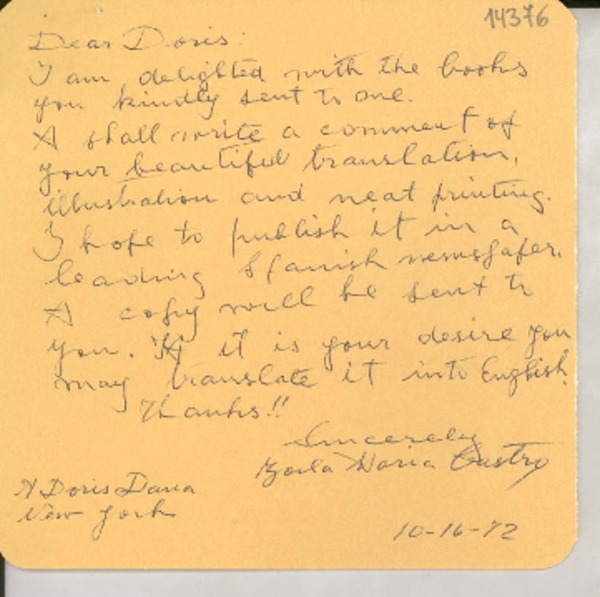 14376
Dear Doris:
I am delighted with the books
you kindly sent to me.
I shall write a comment of
your beautiful translation,
illustration and neat printing.
I hope to publish it in a
leading Spanish newspaper.
A copy will be sent to
you. If it is your desire you
may translate it into English.
Thanks!!
Sincerely
Zoila María Castro
A Doris Dana
New York
10-16-72